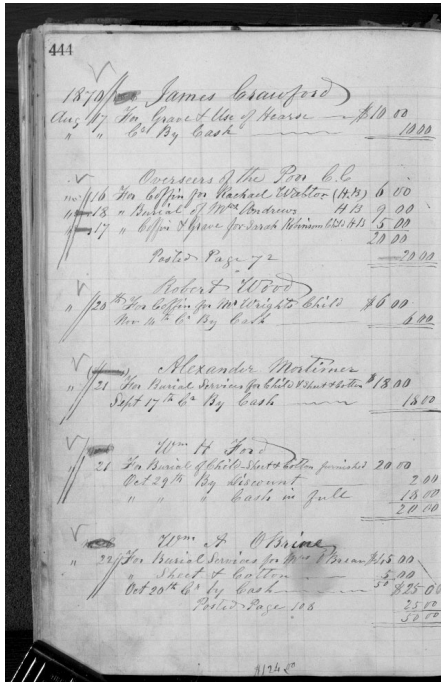 444
1870 James Crawford
Aug 17 For Grave & Use of Hearse $10 00
" " Cr By Cash 10 00
Overseers of the Poor C.C.
" 16 For Coffin for Rachael (H.B) 6 00
" 18 " Burial of Mrs Andrews H B 9 00
" 17 " Coffin & Grave for Sarah Robinson Child H B 5 00
20 00
Posted Page 72 20 00
Robert Wood
" 20th For Coffin for Mr Wrights Child $6 00
Nov 14th Cr By Cash 6 00
Alexander Mortimer
" 21 For Burial Services for Child & Sheet & Cotton $18 00
Sept 17th Cr By Cash 18 00
Wm H Ford
" 21 For Burial of Child Sheet & Cotton furnished 20 00
Oct 29th By Discount 2 00
" " " Cash in full 18 00
20 00
Wm A OBrine
" 22 For Burial Services for Mrs OBrean $45 00
" Sheet & Cotton 5 00
50
Oct 20th Cr by Cash $25 00
Posted Page 106 25 00
50 00